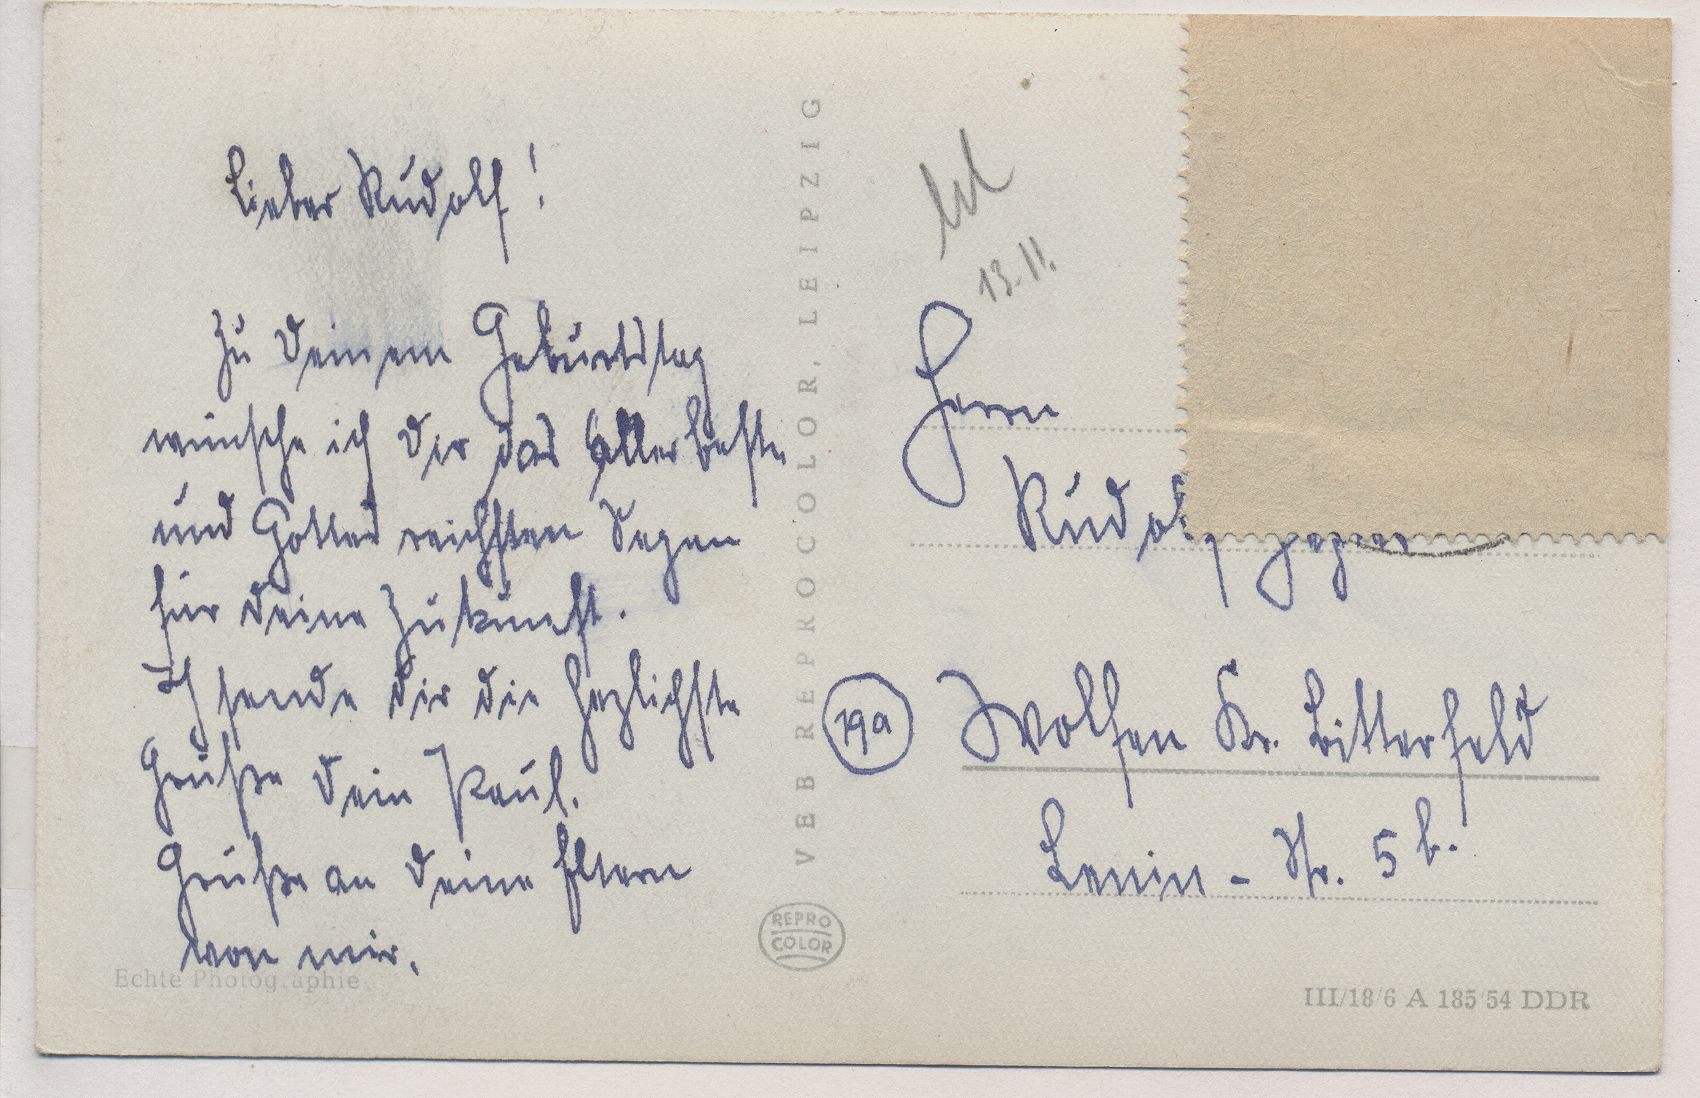 Lieber Rudolf!
Zu Deinem Geburtstag
wünsche ich Dir das Allerbeste
und Gottes reichsten Segen
für Deine Zukunft.
Ich sende Dir die herzlichste
Grüße Dein Paul.
Grüße an Deine Eltern
von mir.
Echte Photographie
VEB REPROCOLOR, LEIPZIG
REPRO
COLOR
13.11.
Herrn
Rudolf
19a Wolfen Kr. Bitterfeld
Lenin-Str. 5 b.
III/18/6 A 185/54 DDR